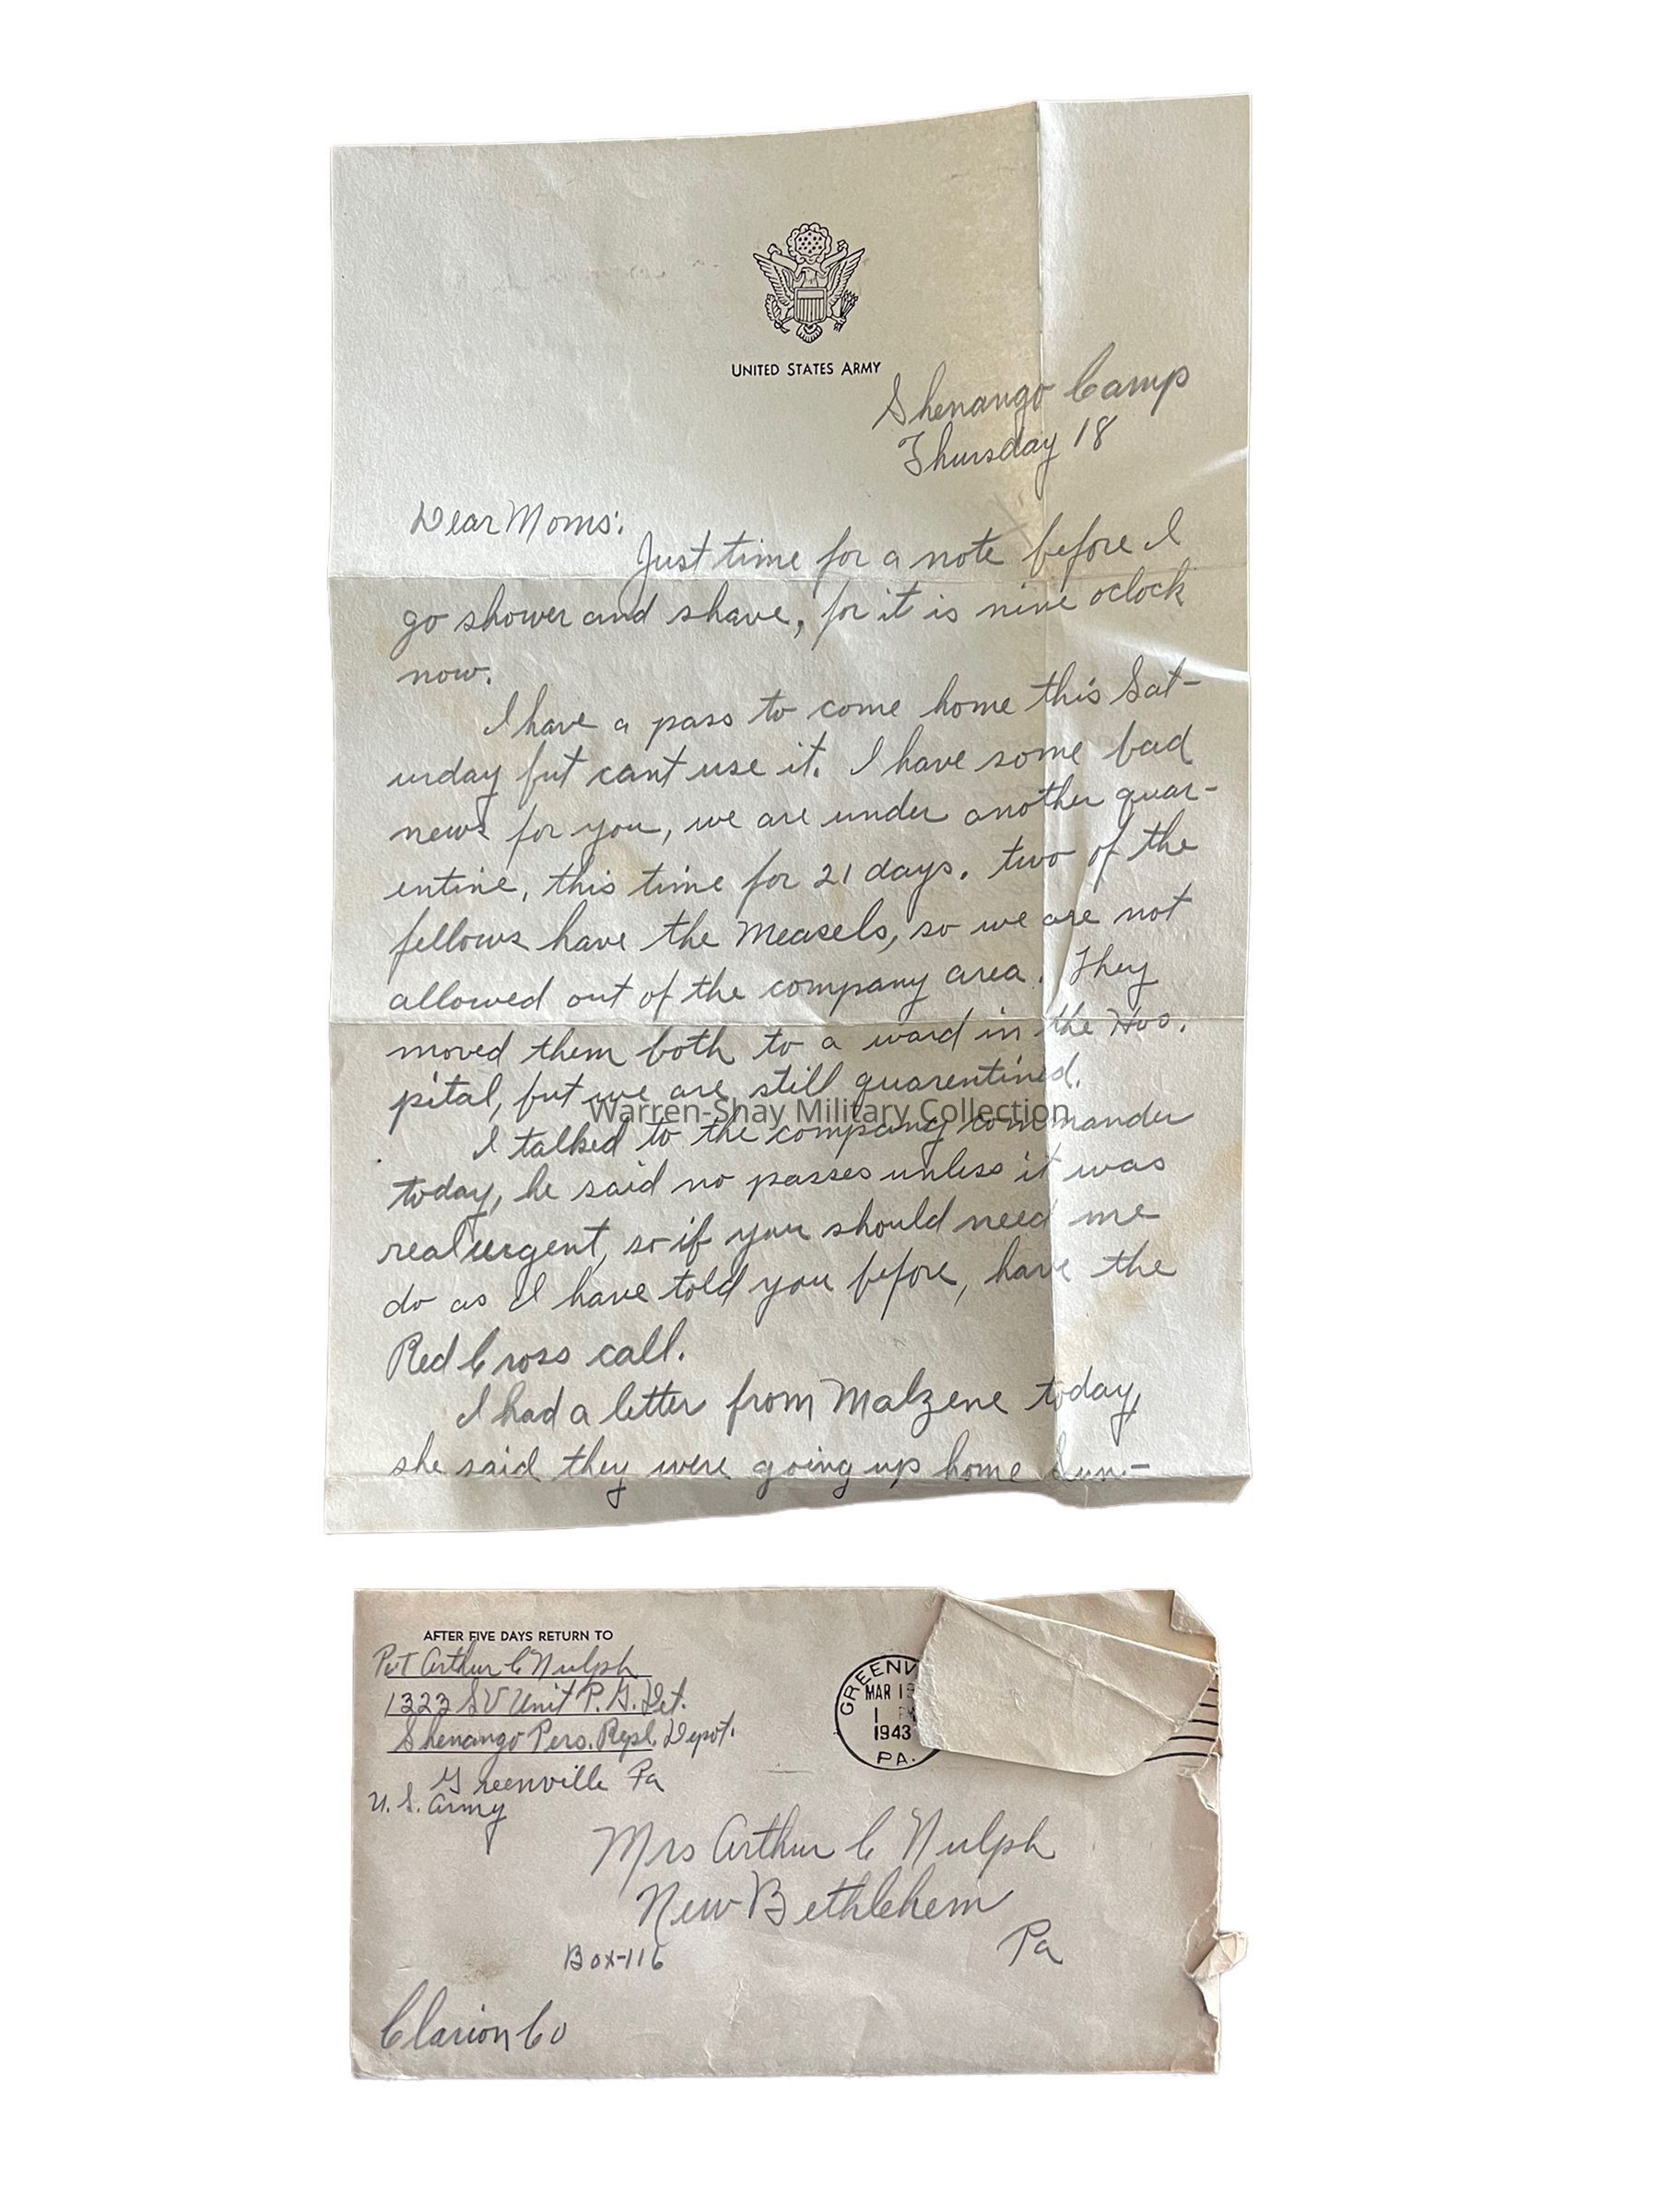 UNITED STATES ARMY
Shenango Camp
Thursday 18
Dear Moms:
Just time for a note before I
go shower and shave, for it is nine oclock
now.
I have a pass to come home this Sat-
urday but cant use it. I have some bad
news for you, we are under another quar-
entine, this time for 21 days. two of the
fellows have the Measels, so we are not
allowed out of the company area. They
moved them both to a ward in the Hos.
pital, but we are still quarentined.
Warren-Shay Military Collection
I talked to the company commander
today, he said no passes unless it was
real urgent, so if you should need me
do as I have told you before, have the
Red Cross call.
I had a letter from Malzene today,
she said they were going up home Sun.-
AFTER FIVE DAYS RETURN TO
Pvt Arthur C Nulph
1323 SV Unit P. G. Det.
Shenango Pers. Repl. Depot.
Greenville Pa
U. S. Army
GREENV
MAR 19
1 PM
1943
PA.
Mrs Arthur C Nulph
New Bethlehem
Pa
Box-116
Clarion Co